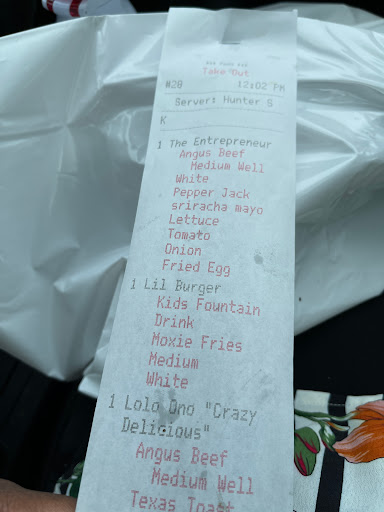 Take Out
#20 12:02 PM
Server: Hunter S
K
1 The Entrepreneur
Angus Beef
Medium Well
White
Pepper Jack
sriracha mayo
Lettuce
Tomato
Onion
Fried Egg
1 Lil Burger
Kids Fountain
Drink
Moxie Fries
Medium
White
1 Lolo Ono "Crazy
Delicious"
Angus Beef
Medium Well
Texas Toast